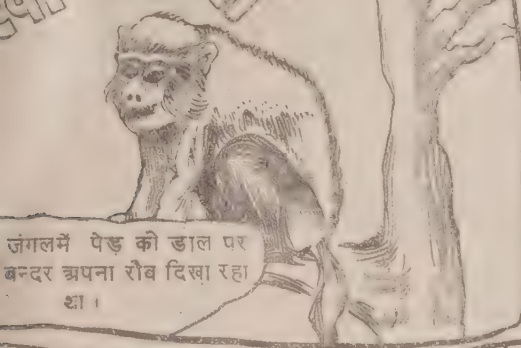 जंगलमें पेड़ की डाल पर
बन्दर अपना रौब दिखा रहा
था।